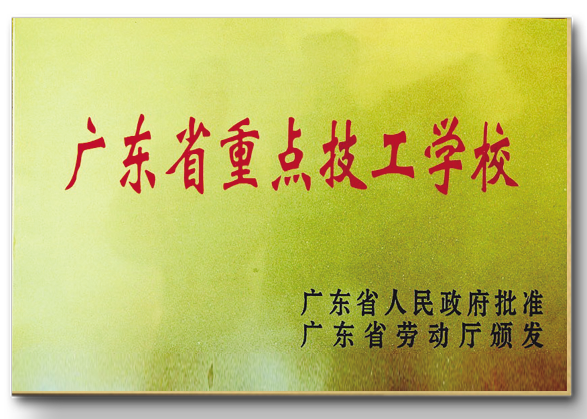 广东省重点技工学校
广东省人民政府批准
广东省劳动厅颁发